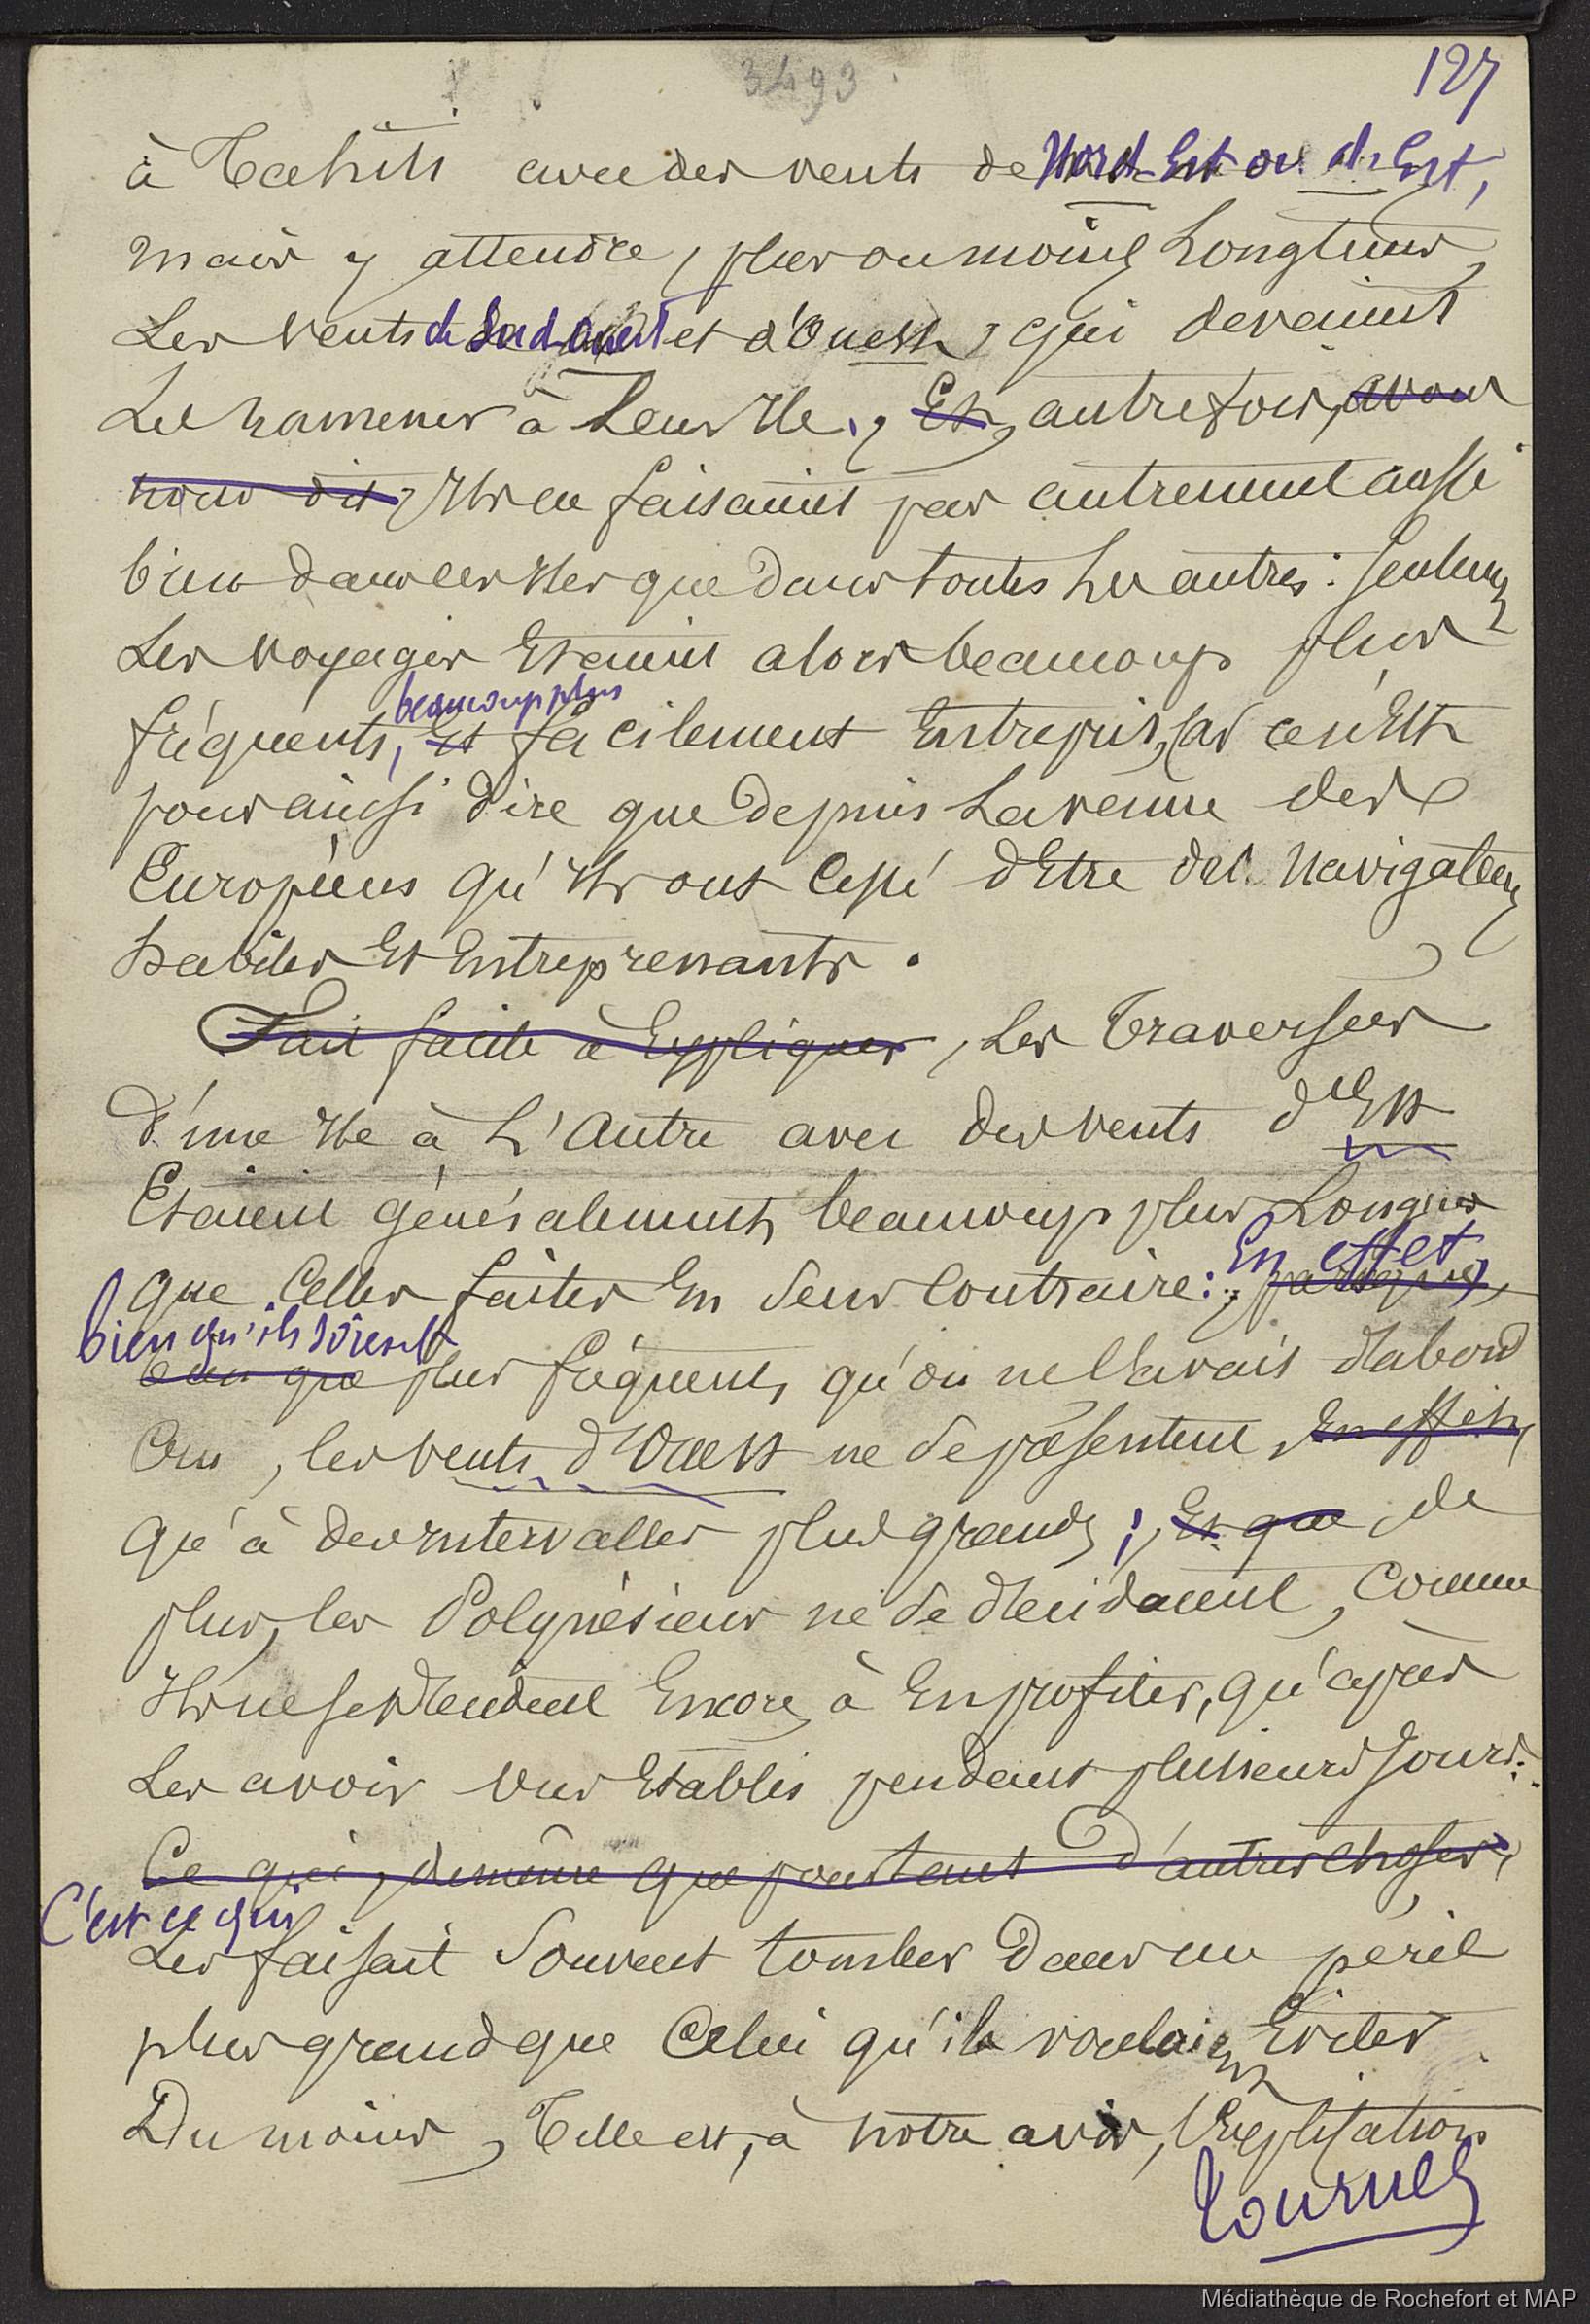 3493
127
à Tahiti avec des vents de Nord-Est ou d'Est,
mais y attendre, plus ou moins longtems,
Les vents de Sud-Ouest et d'Ouest, qui devaient
Les ramener à leur Ile. Et, autrefois, avons
nous dit, Ils ne faisaient pas autrement aussi
bien dans ces Iles que dans toutes les autres : Seulement
Les voyages Etaient alors beaucoup plus
beaucoup plus
fréquents, Et facilement Entrepris, Car ce n'Est
pour ainsi dire que depuis La venue des
Européens qu'Ils ont Cessé d'Etre des Navigateurs
habiles Et Entreprenants.
Fait facile à Expliquer, Les Traversées
d'une Ile à L'Autre avec des vents d'Est
Etaient généralement beaucoup plus Longues
En effet,
que Celles faites En Sens Contraire : parceque,
bien qu'ils soient
bien que plus fréquents qu'on ne l'avait d'abord
Cru, les vents d'Ouest ne se présentent, En effet,
qu'à des Intervalles plus grands ; Et que de
plus, les Polynésiens ne se décidaient, Comme
Ils ne se décident Encore, à En profiter, qu'après
Les avoir vus Etablis pendant plusieurs Jours :
Ce qui, de même que pour tant d'autres choses,
C'est ce qui
Les faisait Souvent tomber dans un péril
plus grand que Celui qu'ils voulaient Eviter
Du moins, Telle est, à notre avis, l'Explication
Tournez
Médiathèque de Rochefort et MAP